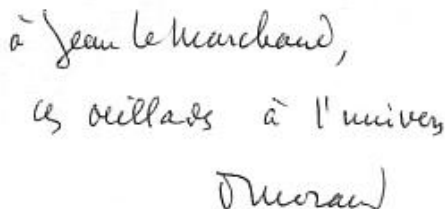 à Jean le Marchand,
ces œillades à l'univers
Morand